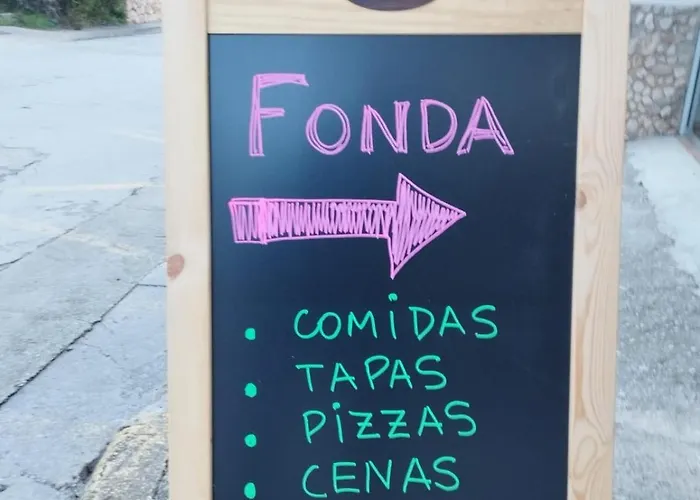 FONDA
• COMiDAS
• TAPAS
• PiZZAS
• CENAS